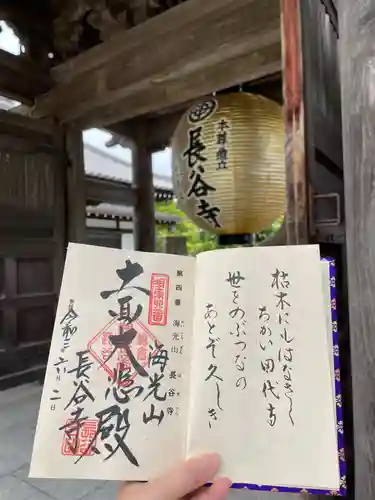 長谷寺
枯木にもはなさく
ちかい田代寺
世をのぶつなの
あとぞ久しき
第四番 海光山 長谷寺
海光山
十一面大悲殿
長谷寺
令和三年六月二日